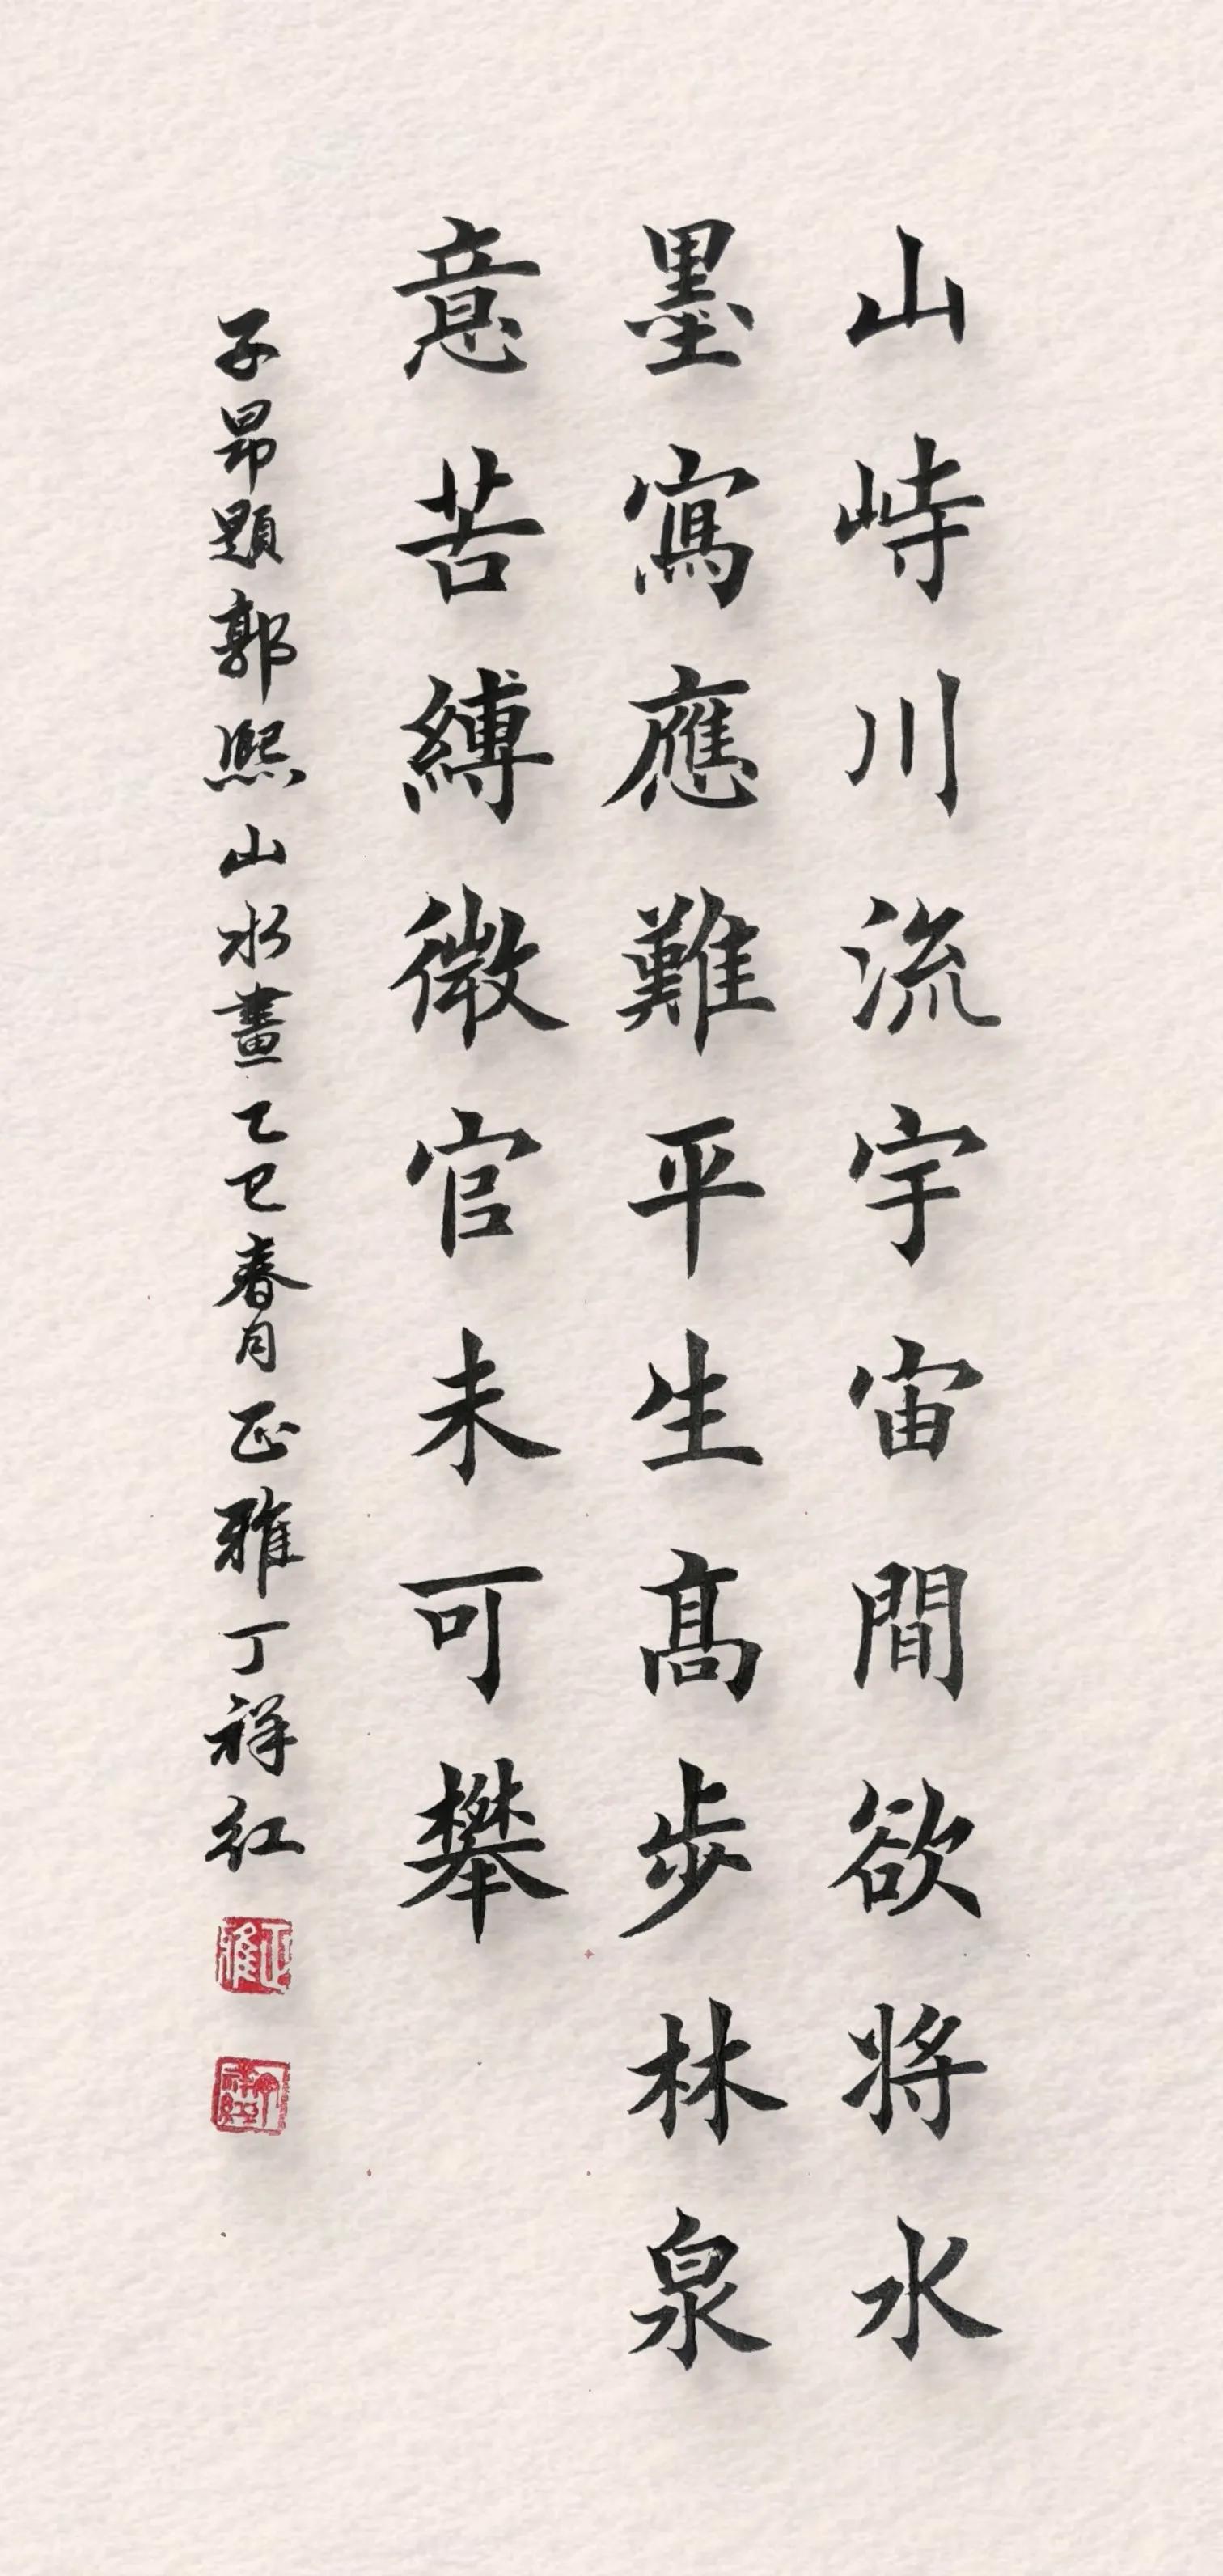 山峙川流宇宙間欲將水
墨寫應難平生高步林泉
意苦縛微官未可攀
子昂題郭熙山水畫乙巳春月正雅丁祥紅
正雅
丁祥紅